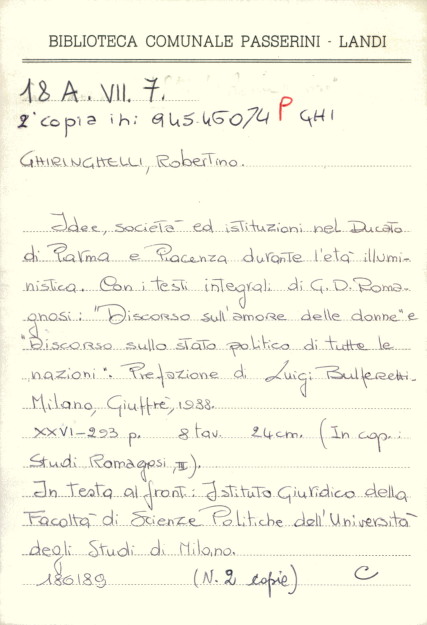 BIBLIOTECA COMUNALE PASSERINI - LANDI
18 A. VII. 7.
2ª copia in: 945.45074 P GHI
GHIRINGHELLI, Robertino.
Idee, società ed istituzioni nel Ducato
di Parma e Piacenza durante l'età illumi-
nistica. Con i testi integrali di G.D. Roma-
gnosi: "Discorso sull'amore delle donne" e
"Discorso sullo stato politico di tutte le
nazioni". Prefazione di Luigi Bulferetti.
Milano, Giuffrè, 1988.
XXVI-293 p. 8 tav. 24cm. (In cop.:
Studi Romagosi, II).
In testa al front.: Istituto Giuridico della
Facoltà di Scienze Politiche dell'Università
degli Studi di Milano.
186189 (N. 2 copie) C